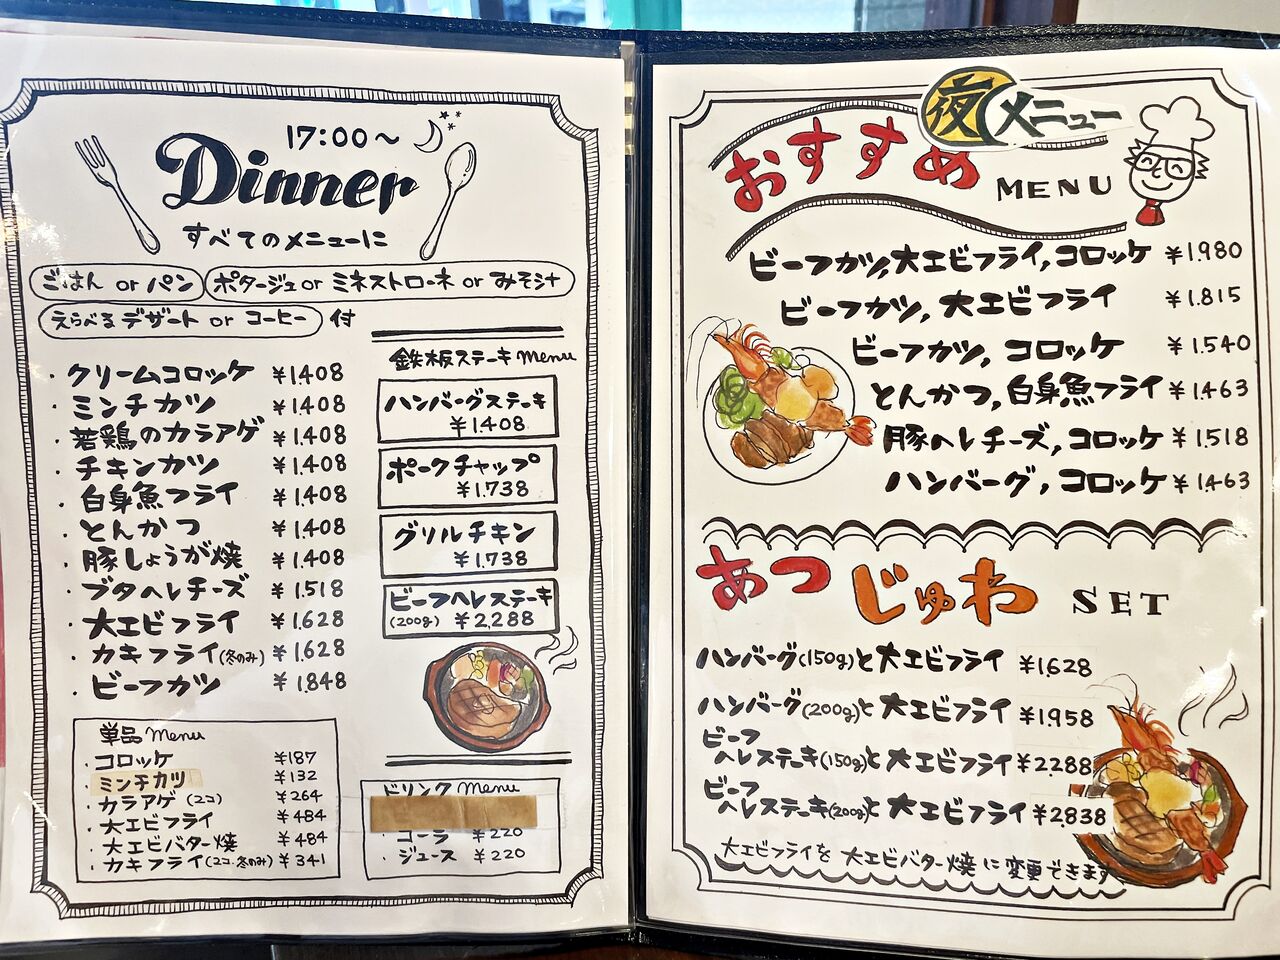 17:00～
Dinner
すべてのメニューに
ごはん or パン ポタージュ or ミネストローネ or みそ汁
えらべるデザート or コーヒー 付
・クリームコロッケ ¥1.408
・ミンチカツ ¥1.408
・若鶏のカラアゲ ¥1.408
・チキンカツ ¥1.408
・白身魚フライ ¥1.408
・とんかつ ¥1.408
・豚しょうが焼 ¥1.408
・ブタヘレチーズ ¥1.518
・大エビフライ ¥1.628
・カキフライ(冬のみ) ¥1.628
・ビーフカツ ¥1.848
単品 Menu
・コロッケ ¥187
・ミンチカツ ¥132
・カラアゲ (2コ) ¥264
・大エビフライ ¥484
・大エビバター焼 ¥484
・カキフライ(2コ.冬のみ) ¥341
鉄板ステーキ Menu
ハンバーグステーキ
¥1.408
ポークチャップ
¥1.738
グリルチキン
¥1.738
ビーフヘレステーキ
(200g) ¥2,288
ドリンク Menu
・コーラ ¥220
・ジュース ¥220
夜メニュー
おすすめ MENU
ビーフカツ,大エビフライ,コロッケ ¥1.980
ビーフカツ, 大エビフライ ¥1.815
ビーフカツ, コロッケ ¥1.540
とんかつ,白身魚フライ ¥1.463
豚ヘレチーズ,コロッケ ¥1.518
ハンバーグ, コロッケ ¥1.463
あつじゅわ SET
ハンバーグ(150g)と大エビフライ ¥1.628
ハンバーグ(200g)と大エビフライ ¥1.958
ビーフ
ヘレステーキ(150g)と大エビフライ ¥2.288
ビーフ
ヘレステーキ(200g)と大エビフライ ¥2.838
大エビフライを大エビバター焼に変更できます